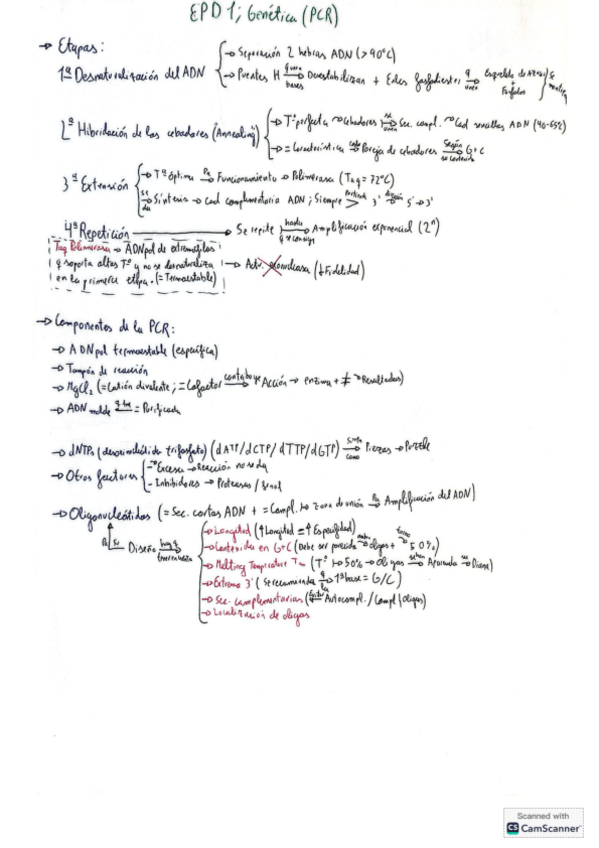 EPD 1; Genética (PCR)
→ Etapas:
1ª Desnaturalización del ADN
→ Separación 2 hebras ADN (>90ºC)
→ Puentes H bases Desestabilizan + Enlces fosfodiester q unen Esqueleto de Azúcar + Fosfatos
2ª Hibridación de los cebadores (Annealing)
→ Tª perfecta → Cebadores se unen Sec. compl. Cad sencillas ADN (40-65ºC)
→ = Característica cada Pareja de cebadores según su contenido G+C
3ª Extensión
→ Tª óptima Pa Funcionamiento → Polimerasa (Taq = 72ºC)
se da Síntesis → Cad complementaria ADN; Siempre 3' 5' → 3'
4ª Repetición → Se repite hasta q se consiga Amplificación exponencial (2ⁿ)
Taq Polimerasa → ADNpol de extremófilos
q soporta altas Tª y no se desnaturaliza → Activ. exonucleasa (↓Fidelidad)
en la primera etapa. (= Termoestable)
→ Componentes de la PCR:
→ ADNpol termoestable (específica)
→ Tampón de reacción
→ MgCl₂ (= Catión divalente; = Cofactor contribuye Acción → enzima + ≠ → Resultados)
→ ADN molde = Purificada
→ dNTPs (desoxinucleótido trifosfato) (dATP/dCTP/dTTP/dGTP) como Piezas → Puzzle
→ Otros factores
- Exceso → Reacción no se da
- Inhibidores → Proteasas / Fenol
→ Oligonucleótidos (= Sec. cortas ADN + = Compl. → zona de unión Pa Amplificación del ADN)
Pa su Diseño hay q tener en cuenta
→ Longitud (↑Longitud = ↑Especificidad)
→ Contenido en G+C (Debe ser parecido entre oligos + 50%)
→ Melting Temperature Tm (Tª → 50% → Oligos Apareada Diana)
→ Extremo 3' (Se recomienda q la 1ª base = G/C)
→ Sec. complementarias (Evitar Autocompl. / Compl. Oligos)
→ Localización de oligos
Scanned with
CS CamScanner